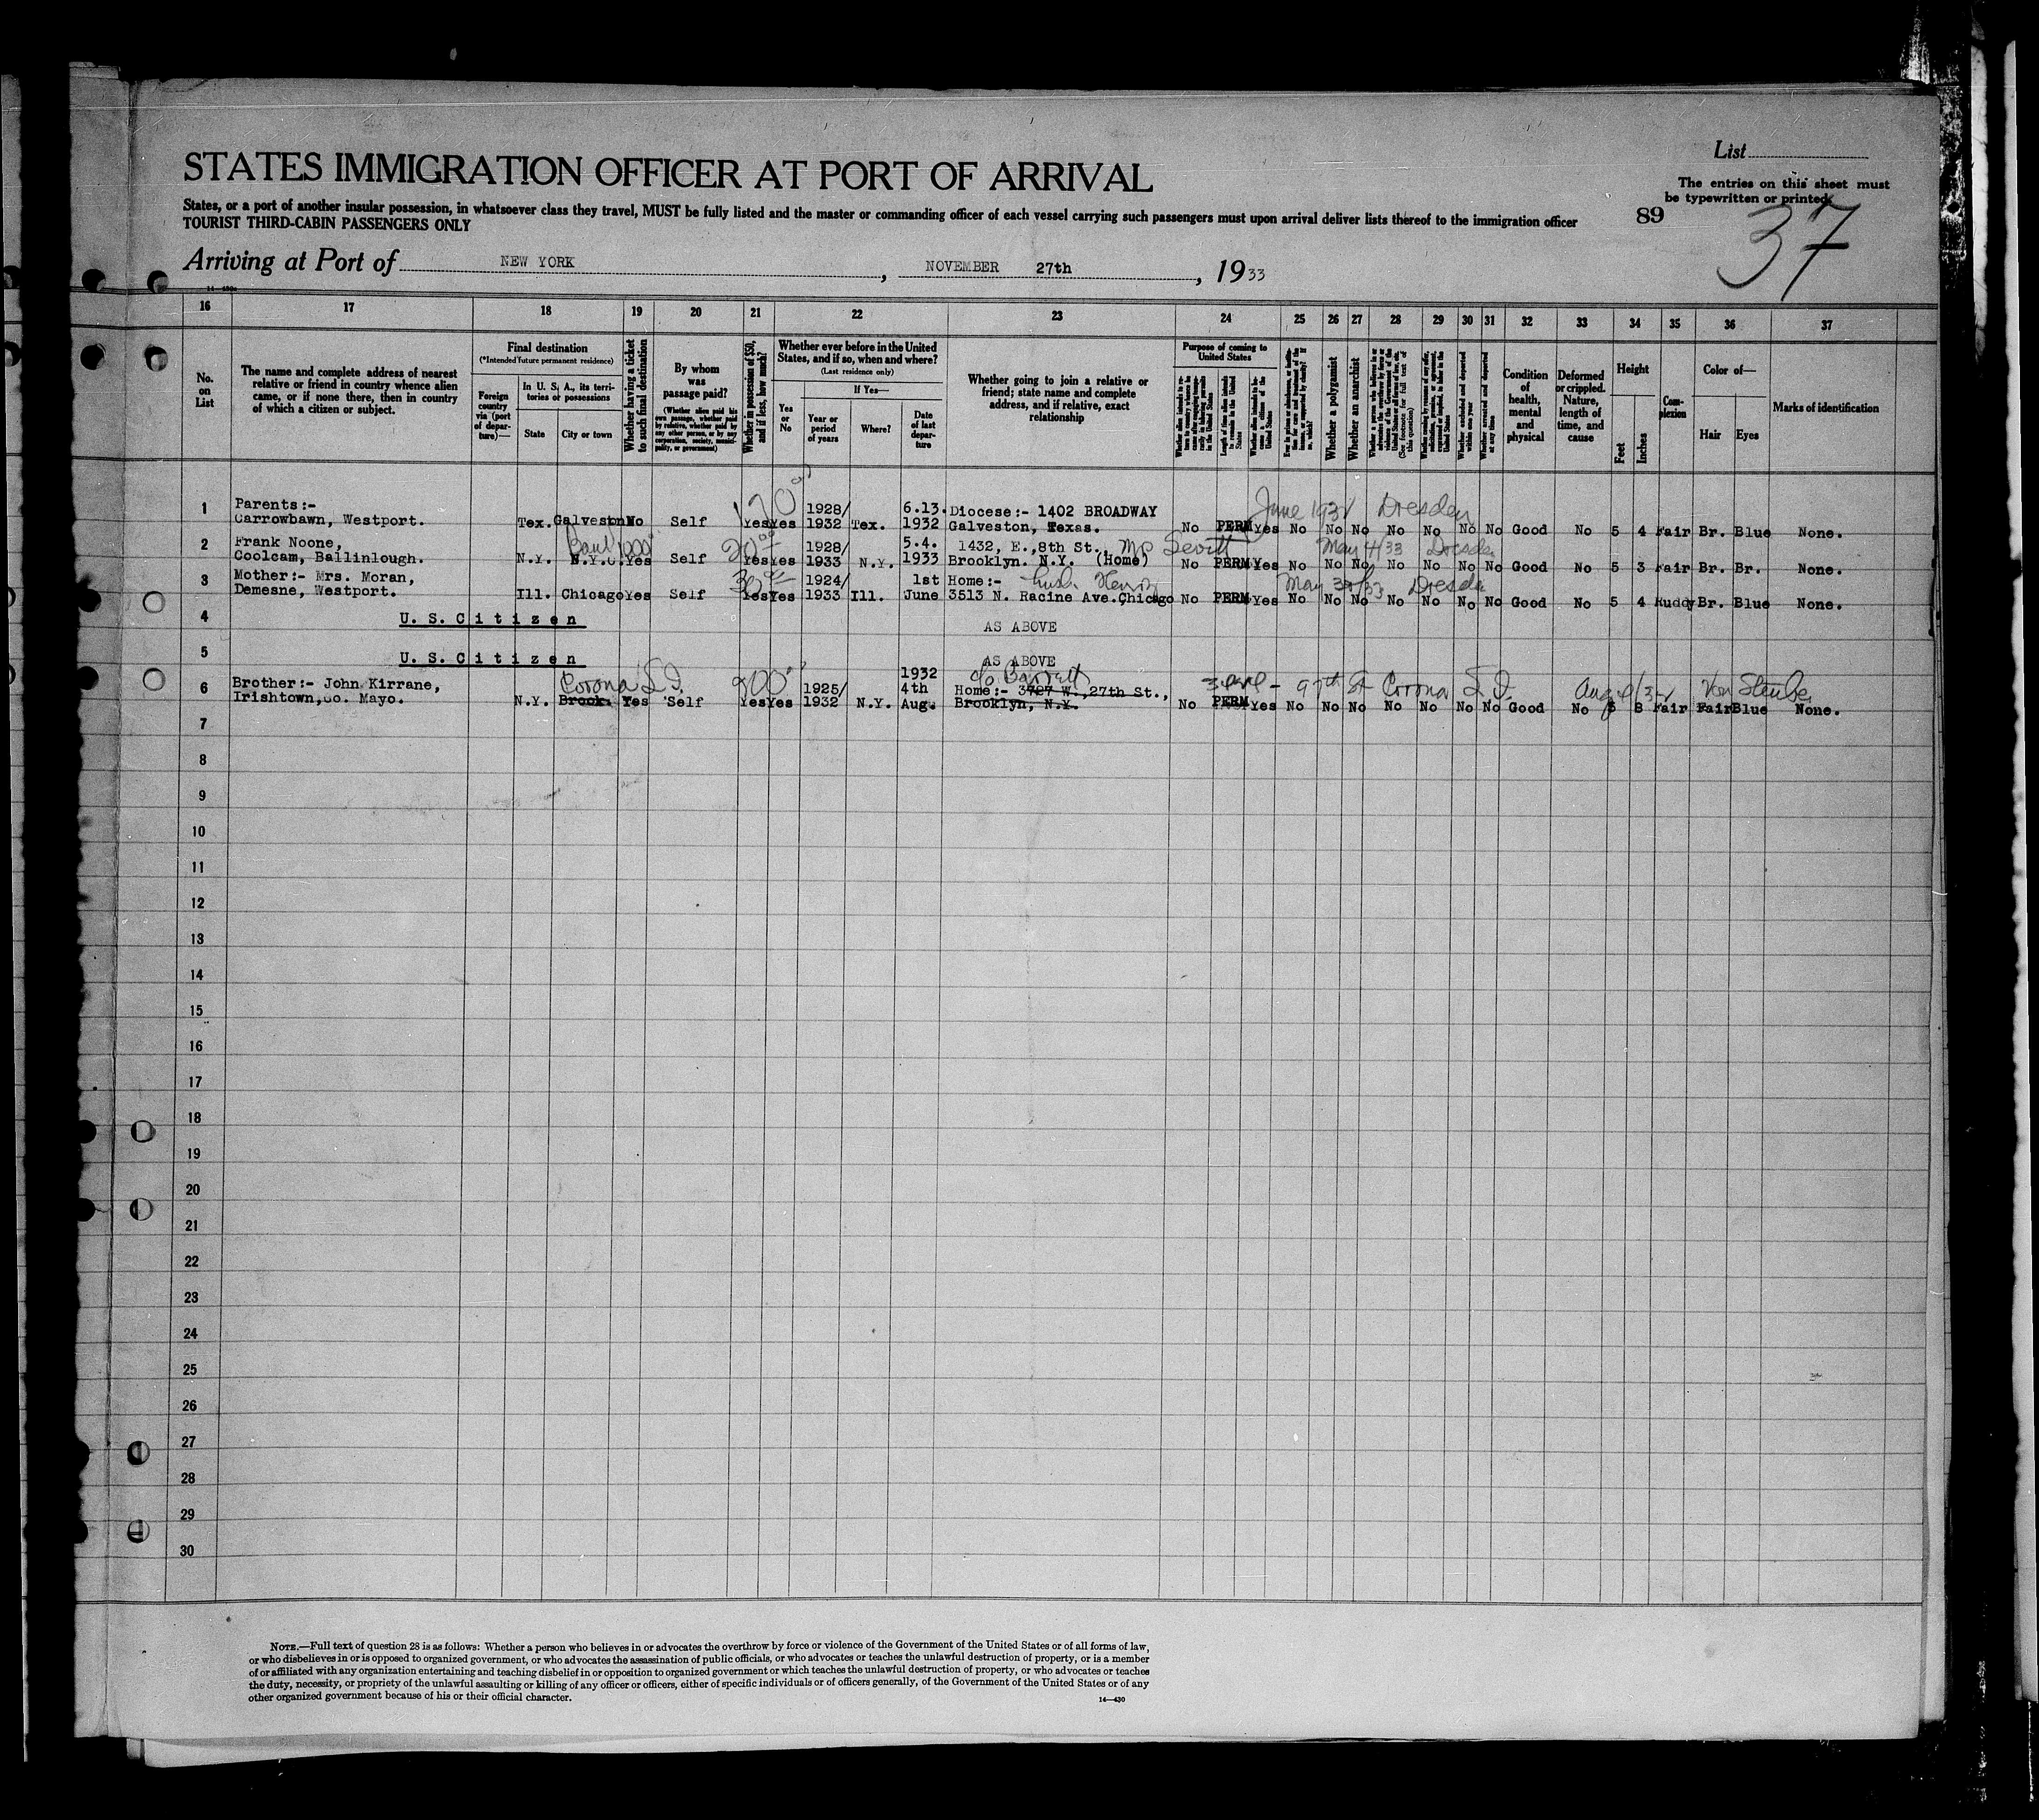 List
STATES IMMIGRATION OFFICER AT PORT OF ARRIVAL
The entries on this sheet must
be typewritten or printed.
States, or a port of another insular possession, in whatsoever class they travel, MUST be fully listed and the master or commanding officer of each vessel carrying such passengers must upon arrival deliver lists thereof to the immigration officer
89
37
TOURIST THIRD-CABIN PASSENGERS ONLY
Arriving at Port of NEW YORK, NOVEMBER 27th, 1933
16 17 18 19 20 21 22 23 24 25 26 27 28 29 30 31 32 33 34 35 36 37
No. on List
The name and complete address of nearest relative or friend in country whence alien came, or if none there, then in country of which a citizen or subject.
Final destination
(*Intended future permanent residence)
Foreign country via (port of departure)—
In U. S. A., its territories or possessions
State
City or town
Whether having a ticket to such final destination
By whom was passage paid?
(Whether alien paid his own passage, whether paid by relative, whether paid by any other person, or by any corporation, society, municipality, or government)
Whether in possession of $50, and if less, how much?
Whether ever before in the United States, and if so, when and where?
(Last residence only)
Yes or No
If Yes—
Year or period of years
Where?
Date of last departure
Whether going to join a relative or friend; state name and complete address, and if relative, exact relationship
Purpose of coming to United States
Length of time alien intends to remain in the United States
Whether a polygamist
Whether an anarchist
(See footnote for full text of this question)
Whether excluded and deported within one year
Whether arrested and deported at any time
Condition of health, mental and physical
Deformed or crippled. Nature, length of time, and cause
Height
Feet
Inches
Complexion
Color of—
Hair
Eyes
Marks of identification
1 Parents:- 170 00 1928/ 6.13. Diocese:- 1402 BROADWAY June 1932 Dresden
Carrowbawn, Westport. Tex. Galveston No Self Yes Yes 1932 Tex. 1932 Galveston, Texas. No PERM Yes No No No No No No No Good No 5 4 Fair Br. Blue None.
2 Frank Noone, 20 00 1928/ 5.4. 1432, E.,8th St., May 4/33 Dresden
Coolcam, Ballinlough. N.Y. N.Y.C. Yes Self Yes Yes 1933 N.Y. 1933 Brooklyn. N.Y. (Home) No PERM Yes No No No No No No No Good No 5 3 Fair Br. Br. None.
3 Mother:- Mrs. Moran, 1924/ 1st Home:- May 30/33 Dresden
Demesne, Westport. Ill. Chicago Yes Self Yes Yes 1933 Ill. June 3513 N. Racine Ave. Chicago No PERM Yes No No No No No No No Good No 5 4 Ruddy Br. Blue None.
4 U. S. C i t i z e n AS ABOVE
5 U. S. C i t i z e n AS ABOVE
6 Brother:- John Kirrane, Corona L.I. 1925/ 1932 4th c/o Barrett Home:- 3707 W.,27th St., 97th St Corona L.I. Von Steuben
Irishtown, Co. Mayo. N.Y. Brook. Yes Self Yes Yes 1932 N.Y. Aug. Brooklyn, N.Y. No PERM Yes No No No No No No No Good No 5 8 Fair Fair Blue None.
7
8
9
10
11
12
13
14
15
16
17
18
19
20
21
22
23
24
25
26
27
28
29
30
NOTE.—Full text of question 28 is as follows: Whether a person who believes in or advocates the overthrow by force or violence of the Government of the United States or of all forms of law,
or who disbelieves in or is opposed to organized government, or who advocates the assassination of public officials, or who advocates or teaches the unlawful destruction of property, or is a member
of or affiliated with any organization entertaining and teaching disbelief in or opposition to organized government or which teaches the unlawful destruction of property, or who advocates or teaches
the duty, necessity, or propriety of the unlawful assaulting or killing of any officer or officers, either of specific individuals or of officers generally, of the Government of the United States or of any
other organized government because of his or their official character.
14—430